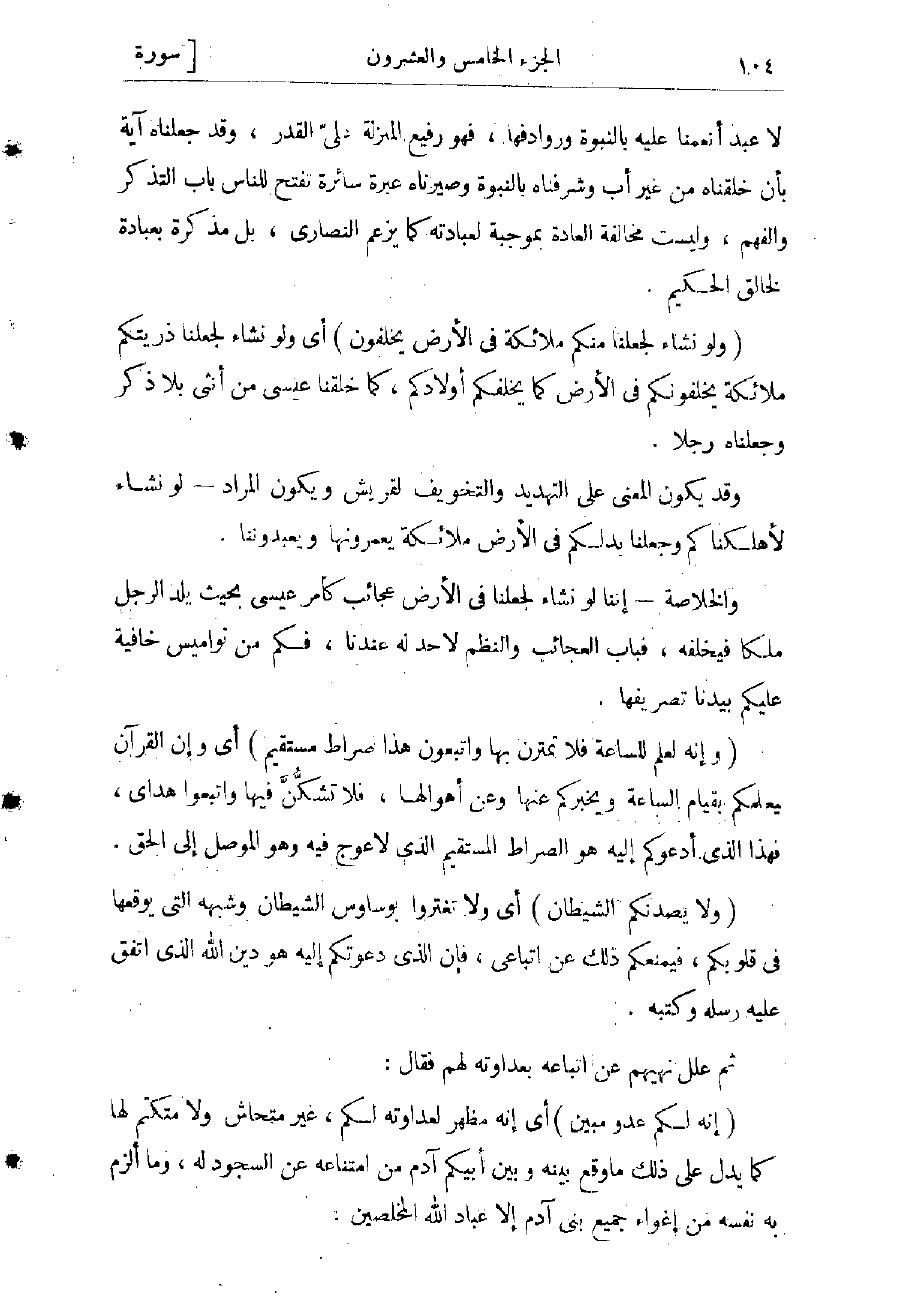 ١٠٤ الجزء الخامس والعشرون [ سورة
لا عبد أنعمنا عليه بالنبوة وروادفها ، فهو رفيع المنزلة علىّ القدر ، وقد جعلناه آية
بأن خلقناه من غير أب وشرفناه بالنبوة وصيرناه عبرة سائرة تفتح للناس باب التذكر
والفهم ، وليست مخالفة العادة بموجبة لعبادته كما يزعم النصارى ، بل مذكرة بعبادة
الخالق الحكيم .
( ولو نشاء لجعلنا منكم ملائكة فى الأرض يخلفون ) أى ولو نشاء لجعلنا ذريتكم
ملائكة يخلفونكم فى الأرض كما يخلفكم أولادكم ، كما خلقنا عيسى من أنثى بلا ذكر
وجعلناه رجلا .
وقد يكون المعنى على التهديد والتخويف لقريش ويكون المراد – لو نشاء
لأهلكناكم وجعلنا بدلكم فى الأرض ملائكة يعمرونها ويعبدوننا .
والخلاصة – إننا لو نشاء لجعلنا فى الأرض عجائب كأمر عيسى بحيث يلد الرجل
ملكا فيخلفه ، فباب العجائب والنظم لاحد له عندنا ، فكم من نواميس خافية
عليكم بيدنا تصريفها .
( وإنه لعلم للساعة فلا تمترن بها واتبعون هذا صراط مستقيم ) أى وإن القرآن
يعلمكم بقيام الساعة ويخبركم عنها وعن أهوالها ، فلا تشكُّنَّ فيها واتبعوا هداى ،
فهذا الذى أدعوكم إليه هو الصراط المستقيم الذى لاعوج فيه وهو الموصل إلى الحق .
( ولا يصدنكم الشيطان ) أى ولا تغتروا بوساوس الشيطان وشبهه التى يوقعها
فى قلوبكم ، فيمنعكم ذلك عن اتباعى ، فإن الذى دعوتكم إليه هو دين الله الذى اتفق
عليه رسله وكتبه .
ثم علل نهيهم عن اتباعه بعداوته لهم فقال :
( إنه لكم عدو مبين ) أى إنه مظهر لعداوته لكم ، غير متحاش ولا متكتم لها
كما يدل على ذلك ماوقع بينه وبين أبيكم آدم من امتناعه عن السجود له ، وما ألزم
به نفسه من إغواء جميع بنى آدم إلا عباد الله المخلصين :